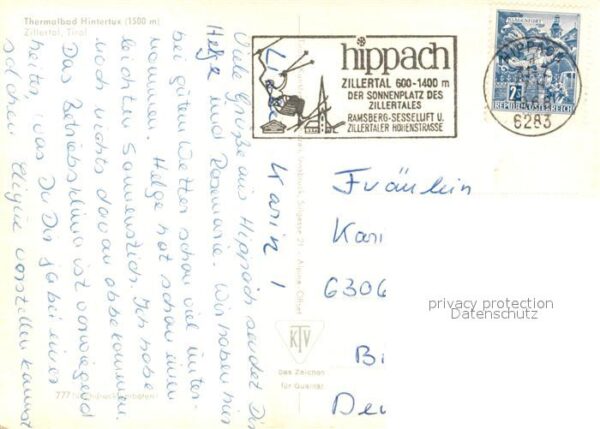 Thermalbad Hintertux (1500 m)
Zillertal, Tirol
Karin!
Viele Grüße aus Hippach sendet Dir
Helge und Rosmarie. Wir haben hier
bei gutem Wetter schon viel unter-
nommen. Helge hat schon einen
leichten Sonnenstich. Ich habe
noch nichts davon abbekommen.
Das Betriebsklima ist vorwiegend
heiter, was Du Dir ja bei einer
solchen Clique vorstellen kannst
hippach
ZILLERTAL 600-1400 m
DER SONNENPLATZ DES
ZILLERTALES
RAMSBERG-SESSELLIFT U.
ZILLERTALER HÖHENSTRASSE
HIPPACH
6283
REPUBLIK ÖSTERREICH
Fräulein
Kari
6306
Bi
Deu
privacy protection
Datenschutz
KTV
Das Zeichen
für Qualität